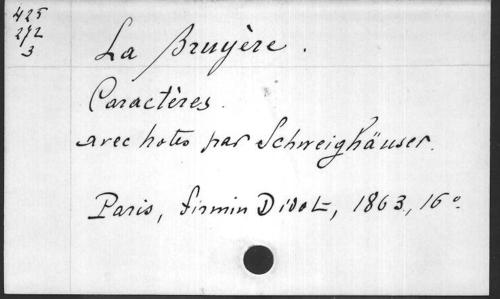 425
272
3
La Bruyère.
Caractères.
avec notes par Schweighäuser.
Paris, Firmin Didot, 1863, 16°.